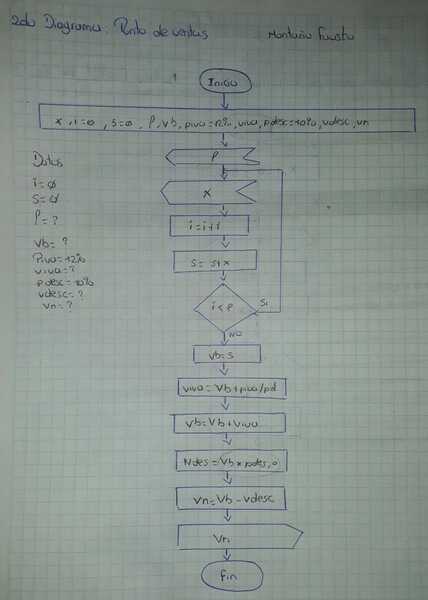 2do Diagrama: Punto de ventas
Montaño Fausto
Inicio
x, i=0, s=0, P, Vb, piva=12%, viva, pdesc=10%, vdesc, vn
P
Datos
i=0
s=0
P=?
Vb=?
Piva=12%
viva=?
pdesc=10%
vdesc=?
Vn=?
x
i=i+1
s=s+x
i<P
Si
NO
Vb=s
viva=Vb+piva/pd
Vb=Vb+Viva
Vdes=Vb*pdes,0
Vn=Vb-Vdesc
Vn
Fin